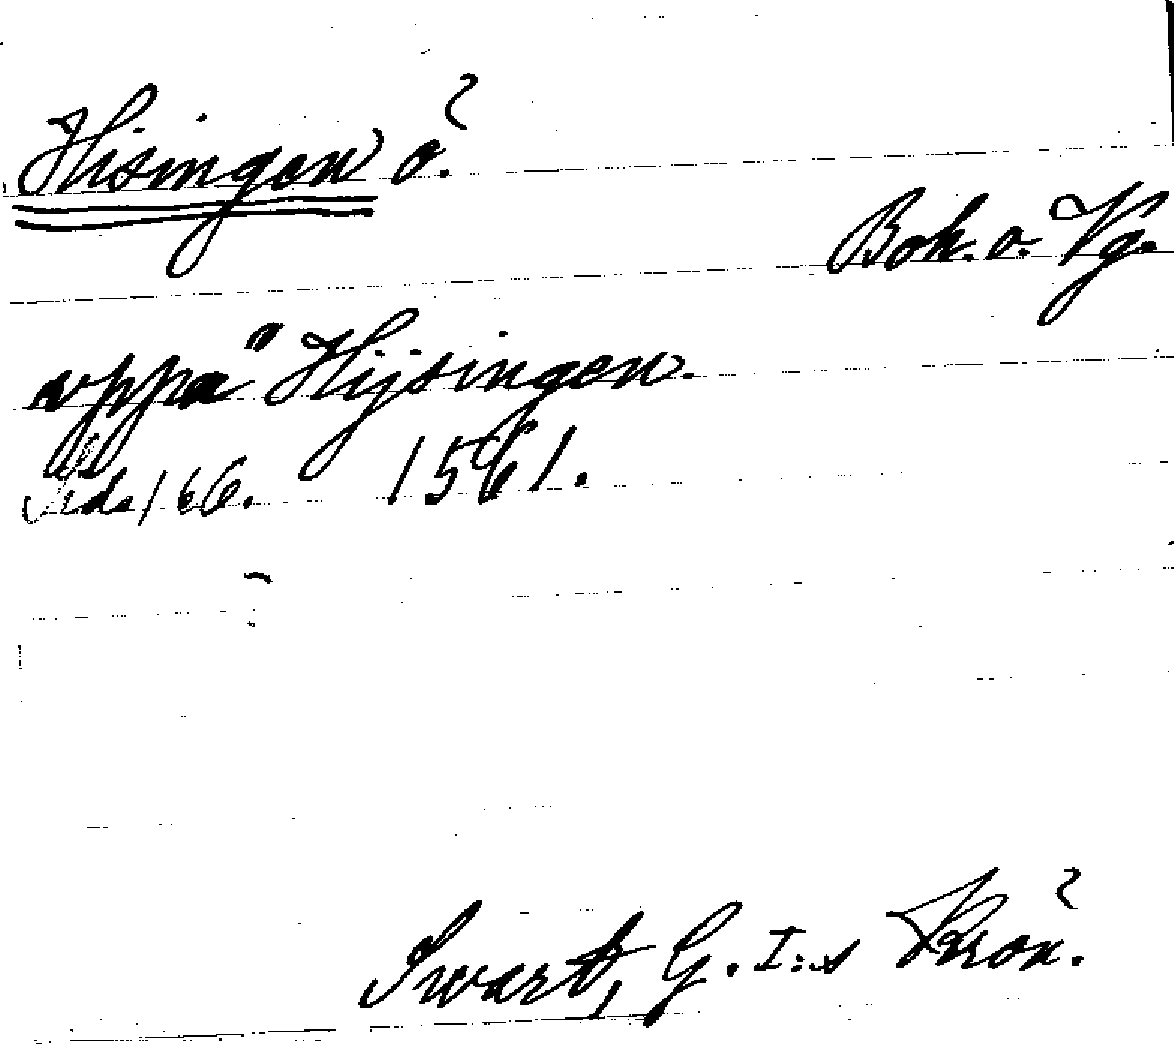 Hisingen ö.
Boh. o. Vg.
vppå Hijsingen.
Sid. 166. 1561.
Swart, G. I:s Krön.